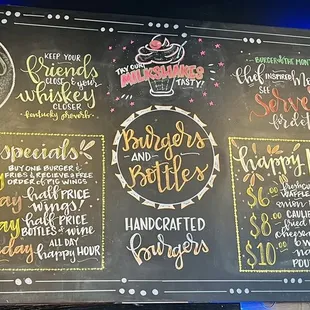 KEEP YOUR
friends
CLOSE & your
whiskey
CLOSER
- kentucky proverb -
TRY OUR
MILKSHAKES
TASTY!
BURGER OF THE MON
chef INSPIRED
SEE
Serve
for de
specials
BUY ONE BURGER &
FRIES & RECIEVE A FREE
ORDER OF PIG WINGS
HALF PRICE
wings!
half PRICE
BOTTLES of wine
ALL DAY
happy HOUR
Burgers
AND
Bottles
HANDCRAFTED
burgers
happy
$6.00
$8.00
$10.00